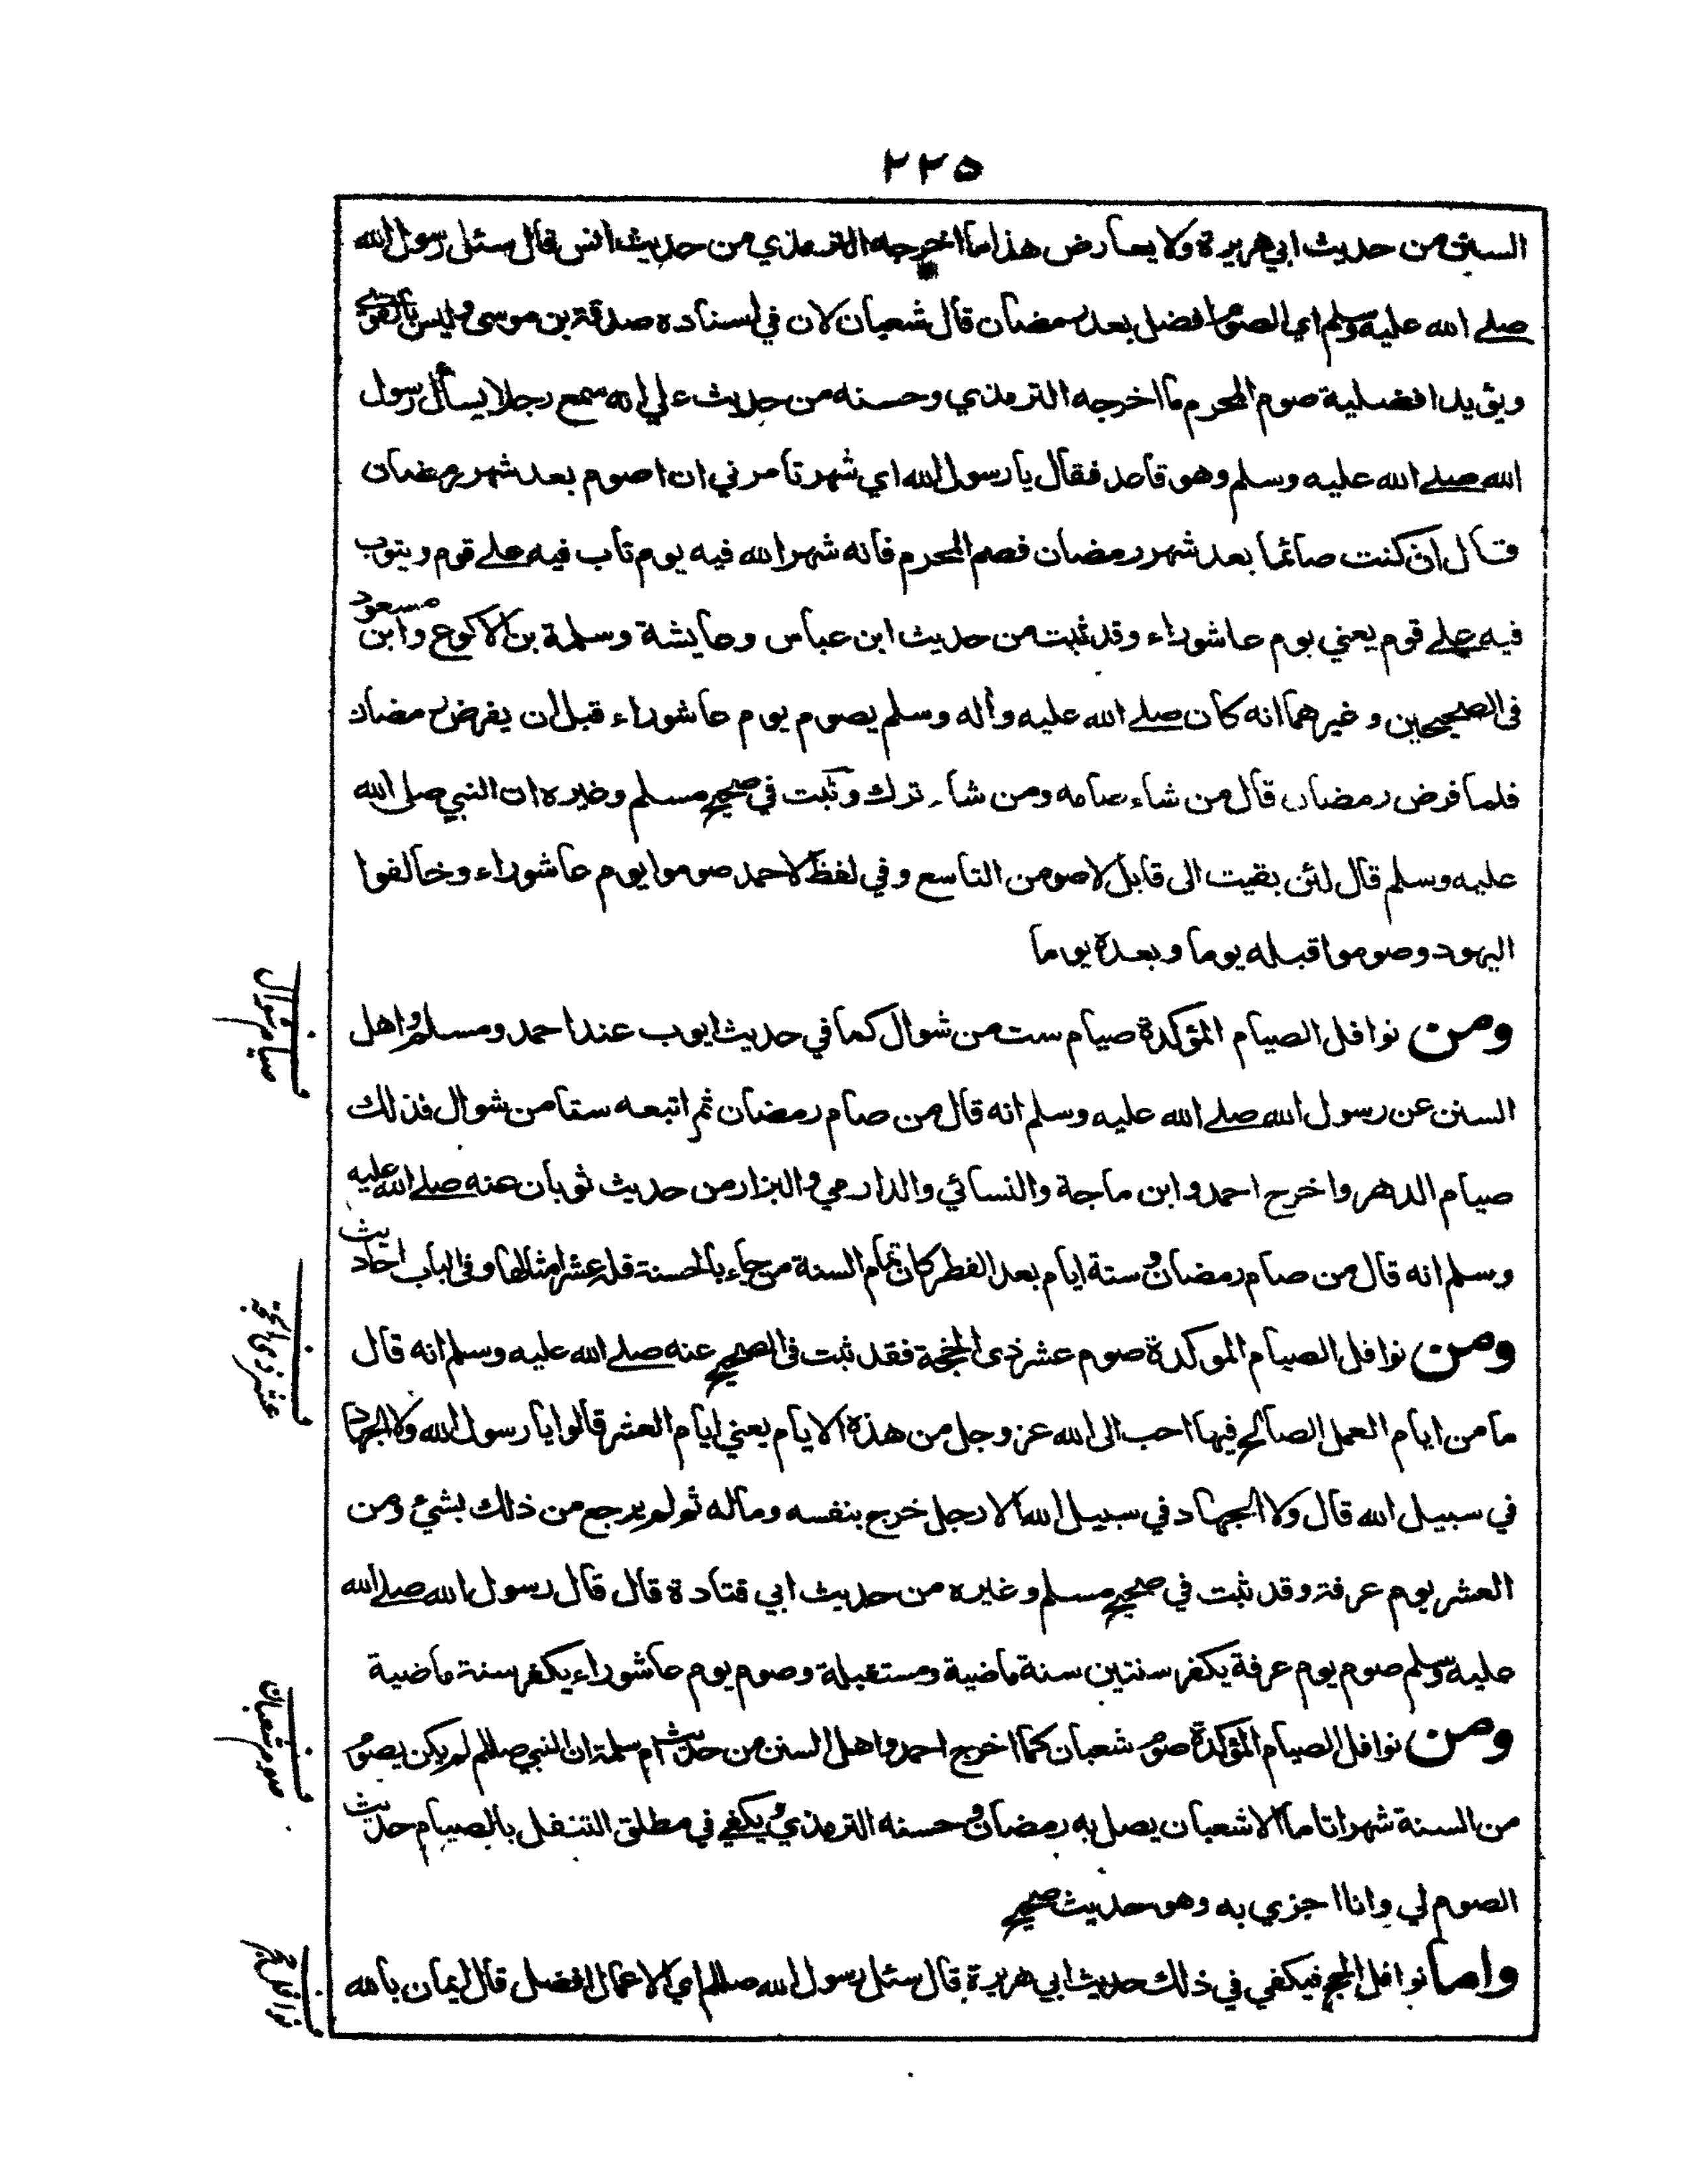 ٢٢٥
السنن من حديث ابي هريرة ولا يعارض هذا ما اخرجه الترمذي من حديث انس قال سئل رسول الله
صلے الله عليه وسلم اي الصوم افضل بعد رمضان قال شعبان لان في اسناده صدقة بن موسى وليس بالقوي
ويؤيد افضلية صوم المحرم ما اخرجه الترمذي وحسنه من حديث علي انه سمع رجلا يسأل رسول
الله صلے الله عليه وسلم وهو قاعد فقال يا رسول الله اي شهر تامرني ان اصوم بعد شهر رمضان
قال ان كنت صائما بعد شهر رمضان فصم المحرم فانه شهر الله فيه يوم تاب فيه علے قوم ويتوب
فيه علے قوم يعني يوم عاشوراء وقد ثبت من حديث ابن عباس وعايشة وسلمة بن الاكوع وابن مسعود
فى الصحيحين وغيرهما انه كان صلے الله عليه وأله وسلم يصوم يوم عاشوراء قبل ان يفرض رمضان
فلما فرض رمضان قال من شاء صامه ومن شاء ترك وثبت في صحيح مسلم وغيره ان النبي صلى الله
عليه وسلم قال لئن بقيت الى قابل لاصومن التاسع وفي لفظ لاحمد صوموا يوم عاشوراء وخالفوا
اليهود وصوموا قبله يوما وبعدة يوما
ومن نوافل الصيام المؤكدة صيام ست من شوال كما في حديث ايوب عند احمد ومسلم واهل
السنن عن رسول الله صلے الله عليه وسلم انه قال من صام رمضان ثم اتبعه ستا من شوال فذلك
صيام الدهر واخرج احمد وابن ماجة والنسائي والدارمي والبزار من حديث ثوبان عنه صلے الله عليه
وسلم انه قال من صام رمضان وستة ايام بعد الفطر كان تمام السنة من جاء بالحسنة فله عشر امثالها وفى الباب احاديث
ومن نوافل الصيام الموكدة صوم عشر ذى الحجة فقد ثبت فى الصحيح عنه صلے الله عليه وسلم انه قال
ما من ايام العمل الصالح فيها احب الى الله عز وجل من هذة الايام يعني ايام العشر قالوا يا رسول الله ولا الجهاد
في سبيل الله قال ولا الجهاد في سبيل الله الا رجل خرج بنفسه وماله ثم لم يرجع من ذلك بشئ ومن
العشر يوم عرفة وقد ثبت في صحيح مسلم وغيره من حديث ابي قتادة قال قال رسول الله صلے الله
عليه وسلم صوم يوم عرفة يكفر سنتين سنة ماضية ومستقبلة وصوم يوم عاشوراء يكفر سنة ماضية
ومن نوافل الصيام المؤكدة صوم شعبان كما اخرج احمد واهل السنن من حديث ام سلمة ان النبي صللم لم يكن يصوم
من السنة شهرا تاما الا شعبان يصل به رمضان وحسنه الترمذي ويكفي في مطلق التنفل بالصيام حديث
الصوم لي وانا اجزي به وهو حديث صحيح
واما نوافل الحج فيكفي في ذلك حديث ابي هريرة قال سئل رسول الله صللم اي الاعمال افضل قال ايمان بالله
صيام شوال
عشر ذى الحجة
صوم شعبان
نوافل حج